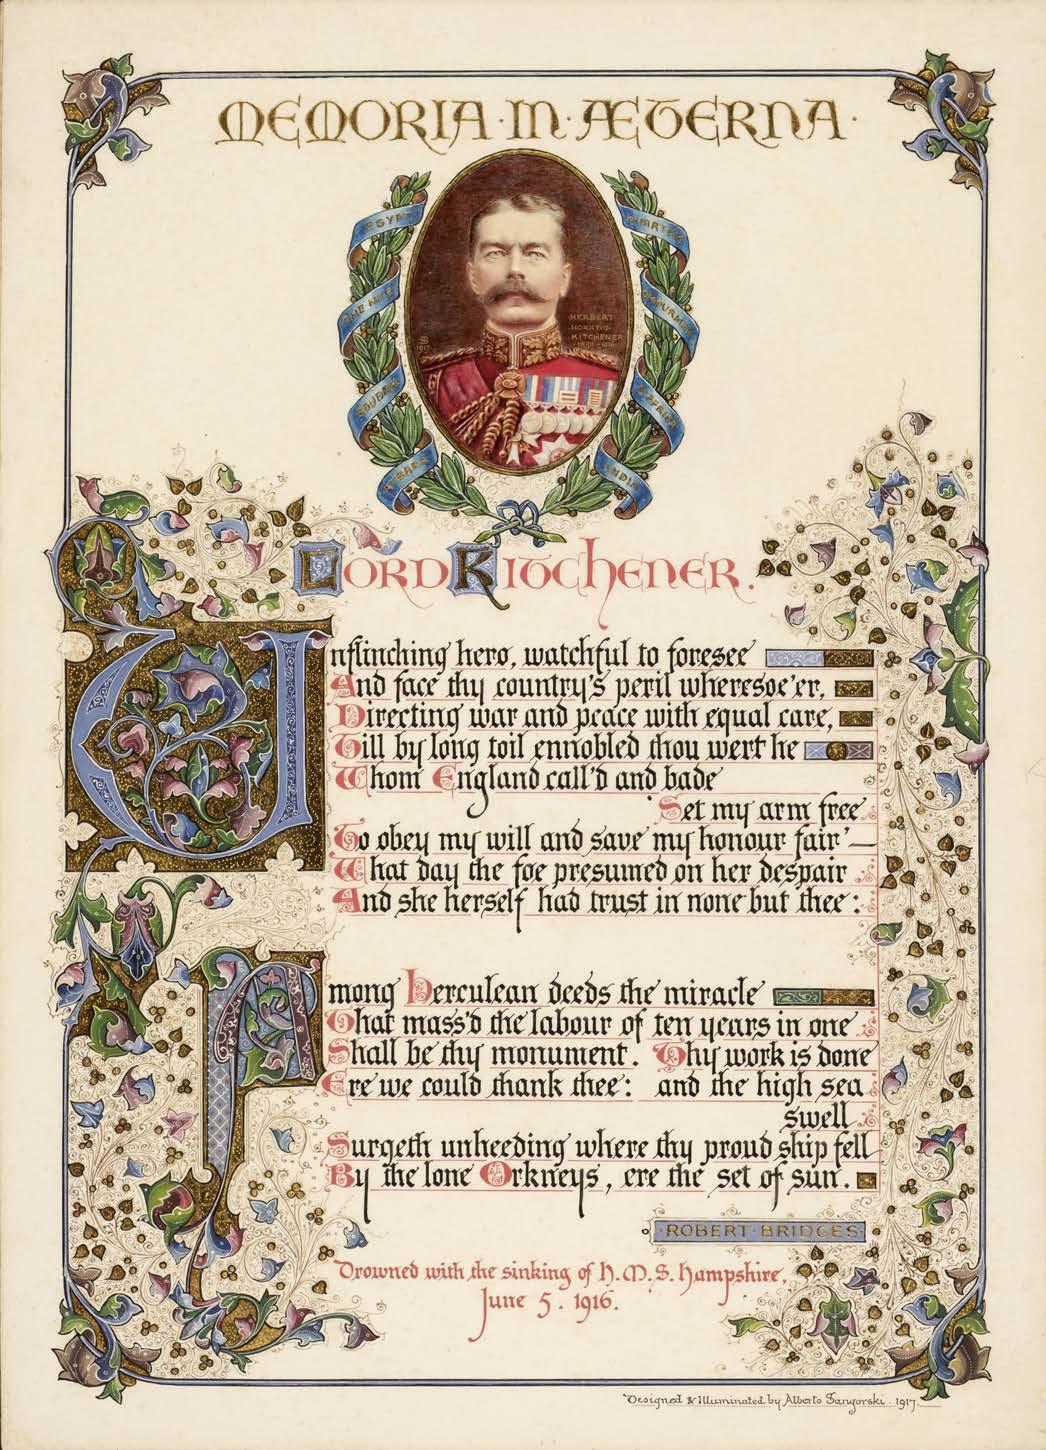 MEMORIA · IN · ÆTERNA ·
EGYPT
THE NILE
SOUDAN
ATBARA
KHARTUM
S. AFRICA
INDIA
HERBERT
HORATIO
KITCHENER
LORD KITCHENER.
Unflinching hero, watchful to foresee
And face thy country's peril wheresoe'er,
Directing war and peace with equal care,
Till by long toil ennobled thou wert he
Whom England call'd and bade
'Set my arm free
To obey my will and save my honour fair' —
What day the foe presumed on her despair
And she herself had trust in none but thee:
Among Herculean deeds the miracle
That mass'd the labour of ten years in one
Shall be thy monument. Thy work is done
Ere we could thank thee: and the high sea
swell
Surgeth unheeding where thy proud ship fell
By the lone Orkneys, ere the set of sun.
ROBERT BRIDGES
Drowned with the sinking of H.M.S. Hampshire,
June 5. 1916.
Designed & Illuminated by Alberto Sangorski. 1917.